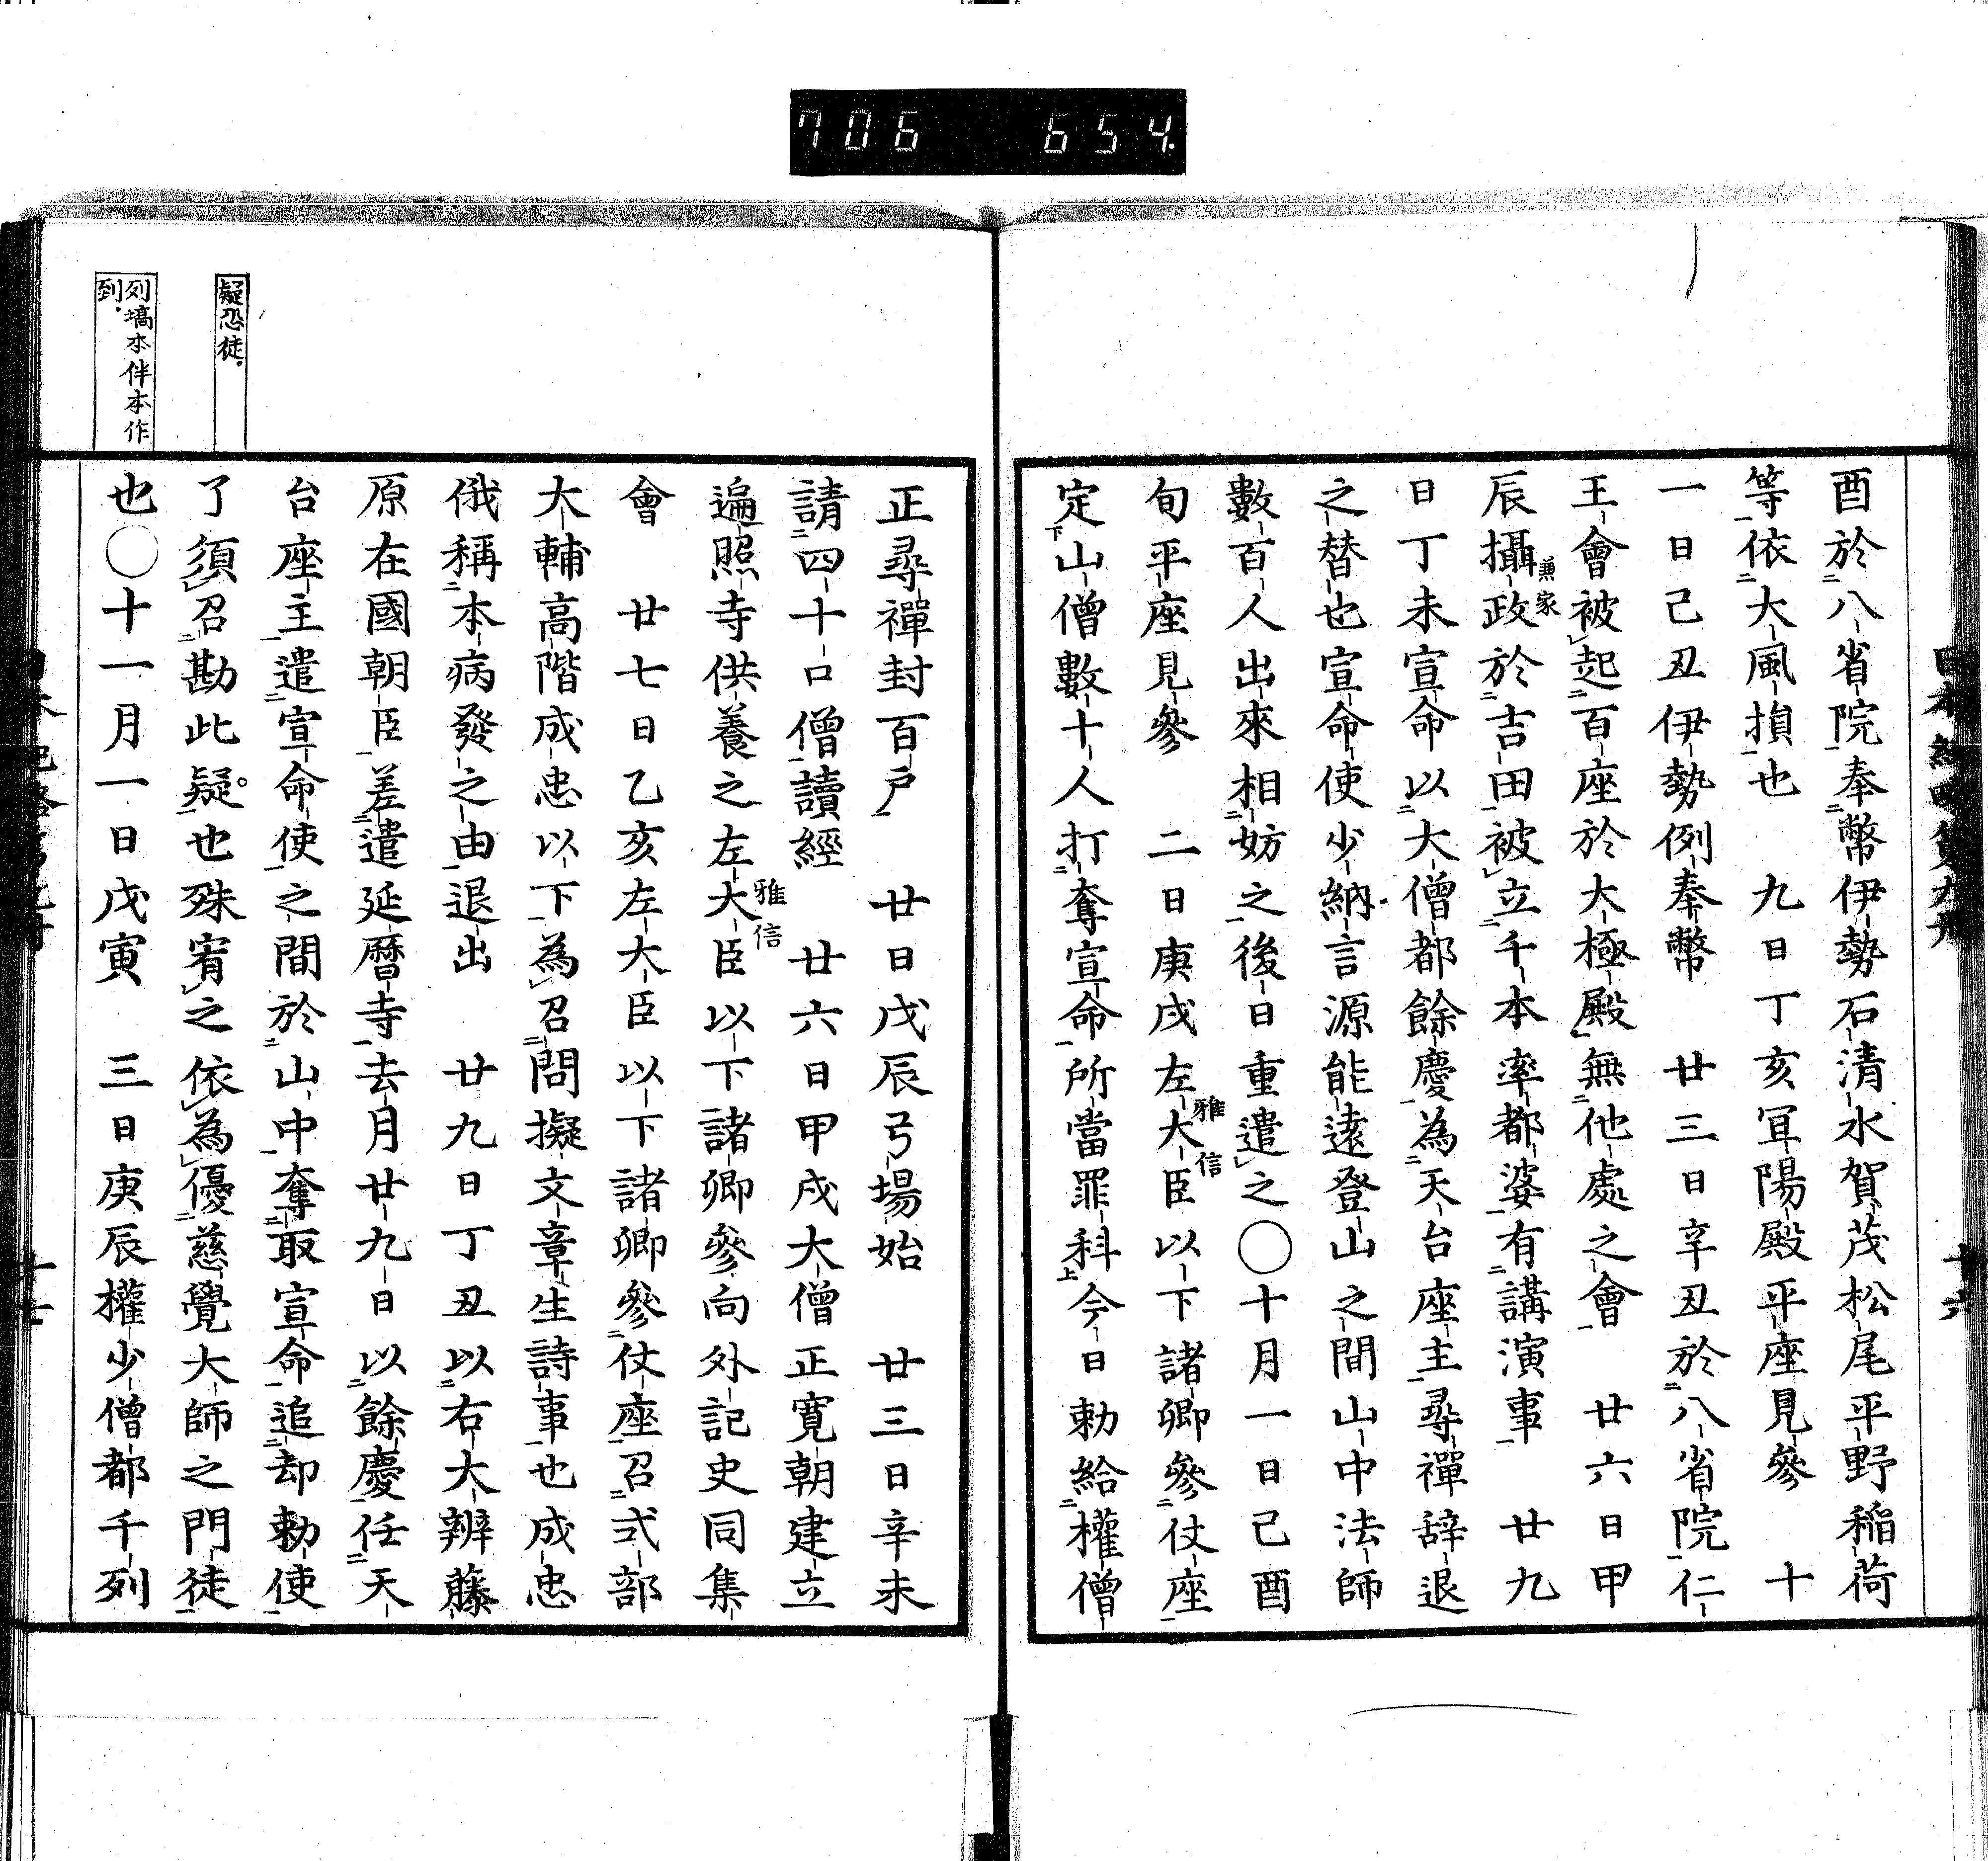 706 654.
酉於八省院奉幣伊勢石清水賀茂松尾平野稲荷
等依大風損也　九日丁亥冝陽殿平座見參　十
一日己丑伊勢例奉幣　廿三日辛丑於八省院仁
王會被起百座於大極殿無他處之會　廿六日甲
辰攝政於吉田被立千本率都婆有講演事　廿九
兼家
日丁未宣命以大僧都餘慶為天台座主尋禪辞退
之替也宣命使少納言源能遠登山之間山中法師
數百人出來相妨之後日重遣之〇十月一日己酉
旬平座見參　二日庚戌左大臣以下諸卿參仗座
雅信
定山僧數十人打奪宣命所當罪科今日勅給權僧
疑恐徒
列塙本伴本作
到
正尋禪封百戸　廿日戊辰弓場始　廿三日辛未
請四十口僧讀經　廿六日甲戌大僧正寛朝建立
遍照寺供養之左大臣以下諸卿參向外記史同集
雅信
會　廿七日乙亥左大臣以下諸卿參仗座召式部
大輔高階成忠以下為召問擬文章生詩事也成忠
俄稱本病發之由退出　廿九日丁丑以右大辨藤
原在國朝臣差遣延暦寺去月廿九日以餘慶任天
台座主遣宣命使之間於山中奪取宣命追却勅使
了須召勘此疑也殊宥之依為優慈覺大師之門徒
也〇十一月一日戊寅　三日庚辰權少僧都千列